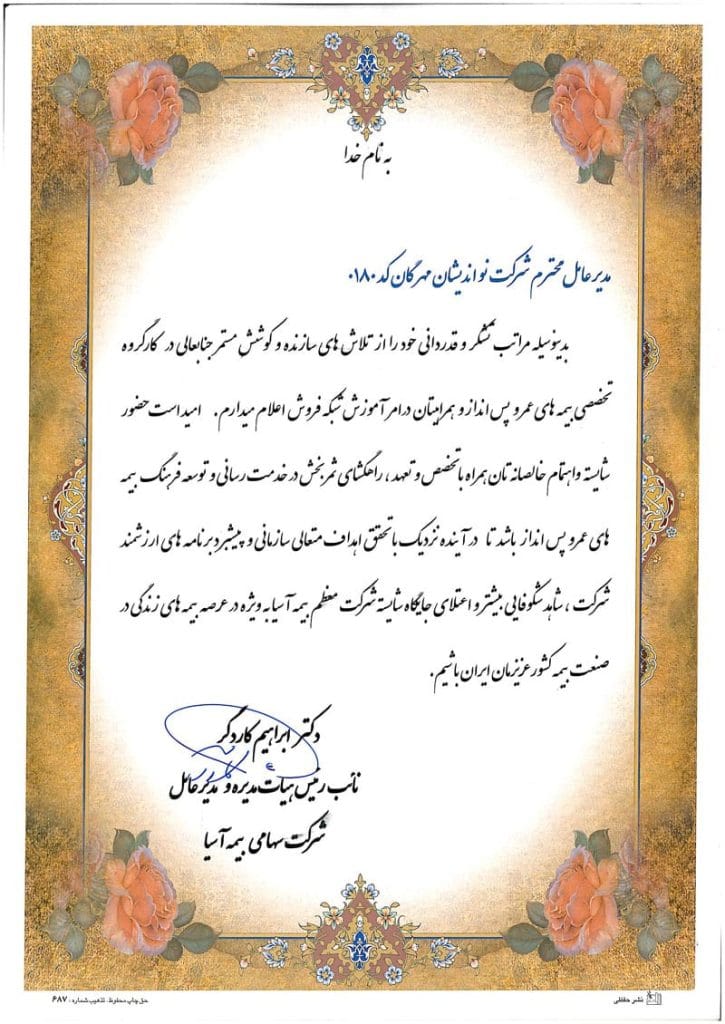 به نام خدا
مدیر عامل محترم شرکت نواندیشان مهرگان کد ۰۱۸۰
بدینوسیله مراتب تشکر و قدردانی خود را از تلاش های سازنده و کوشش مستمر جنابعالی در کارگروه
تخصصی بیمه های عمر و پس انداز و همراهیتان در امر آموزش شبکه فروش اعلام میدارم. امید است حضور
شایسته و اهتمام خالصانه تان همراه با تخصص و تعهد، راهگشای ثمربخش در خدمت رسانی و توسعه فرهنگ بیمه
های عمر و پس انداز باشد تا در آینده نزدیک با تحقق اهداف متعالی سازمانی و پیشبرد برنامه های ارزشمند
شرکت، شاهد شکوفایی بیشتر و اعتلای جایگاه شایسته شرکت معظم بیمه آسیا به ویژه در عرصه بیمه های زندگی در
صنعت بیمه کشور عزیزمان ایران باشیم.
دکتر ابراهیم کاردگر
نائب رئیس هیأت مدیره و مدیر عامل
شرکت سهامی بیمه آسیا
نشر حفظی
حق چاپ محفوظ، تذهیب شماره: ۶۸۷